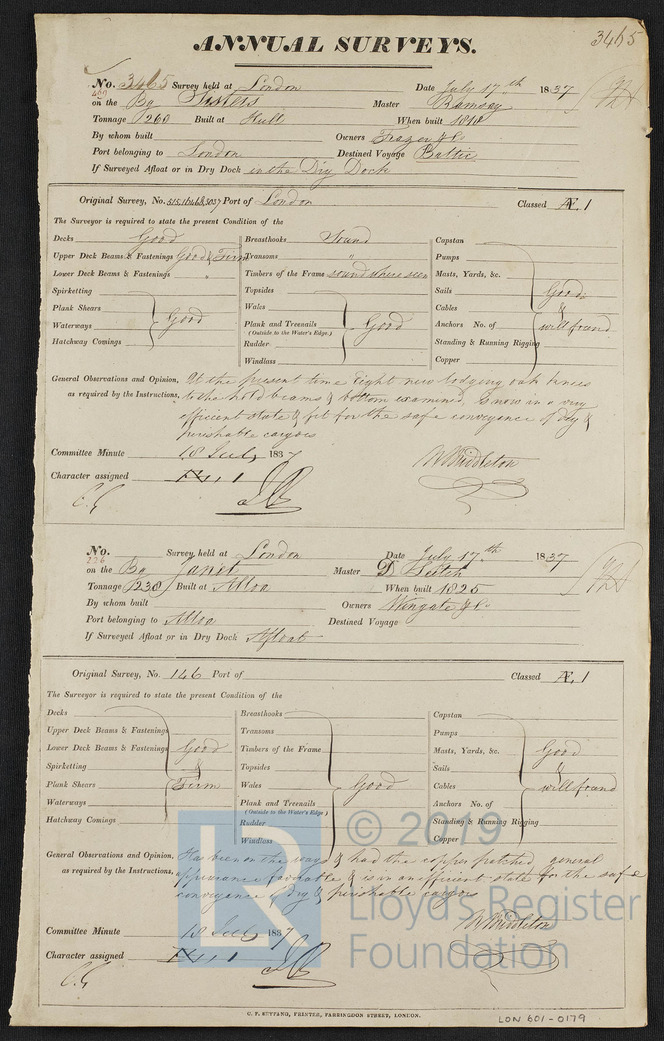 3465
ANNUAL SURVEYS.
No. 3465 Survey held at London Date July 17th 1837
on the Bg Sisters Master Ramsay
Tonnage 260 Built at Hull When built 1818
By whom built Owners Frazer & Co
Port belonging to London Destined Voyage Baltic
If Surveyed Afloat or in Dry Dock in the Dry Dock
Original Survey, No. Port of London Classed Æ 1
The Surveyor is required to state the present Condition of the
Decks Good Breasthooks Sound Capstan
Upper Deck Beams & Fastenings Good & Firm Transoms " Pumps
Lower Deck Beams & Fastenings " Timbers of the Frame sound where seen Masts, Yards, &c.
Spirketting Topsides Sails Good
Plank Shears Wales Cables &
Waterways Good Plank and Treenails Good Anchors No. of well found
(Outside to the Water's Edge.)
Hatchway Comings Rudder Standing & Running Rigging
Windlass Copper
General Observations and Opinion, At the present time Eight new lodging oak knees
as required by the Instructions, to the hold beams & bottom examined, Is now in a very
efficient state & fit for the safe conveyance of dry &
perishable cargoes
Committee Minute 18 July 1837 W Middleton
Character assigned Æ 1
No. Survey, held at London Date July 17th 1837
226
on the Bg Janet Master D Leitch
Tonnage 230 Built at Alloa When built 1825
By whom built Owners Wingate & Co
Port belonging to Alloa Destined Voyage
If Surveyed Afloat or in Dry Dock Afloat
Original Survey, No. 146 Port of Classed Æ 1
The Surveyor is required to state the present Condition of the
Decks Breasthooks Capstan
Upper Deck Beams & Fastenings Transoms Pumps
Lower Deck Beams & Fastenings Good Timbers of the Frame Masts, Yards, &c. Good
Spirketting & Topsides Sails &
Plank Shears Firm Wales Good Cables well found
Waterways Plank and Treenails Anchors No. of
(Outside to the Water's Edge.)
Hatchway Comings Rudder Standing & Running Rigging
Windlass Copper
General Observations and Opinion, Has been on the ways & had the copper patched, general
as required by the Instructions, appearance favorable & is in an efficient state for the safe
conveyance of dry & perishable cargoes
Committee Minute 18 July 1837 W Middleton
Character assigned Æ 1
LR
© 2019
Lloyd's Register
Foundation
C. F. SEYFANG, PRINTER, FARRINGDON STREET, LONDON.
LON 601-0179